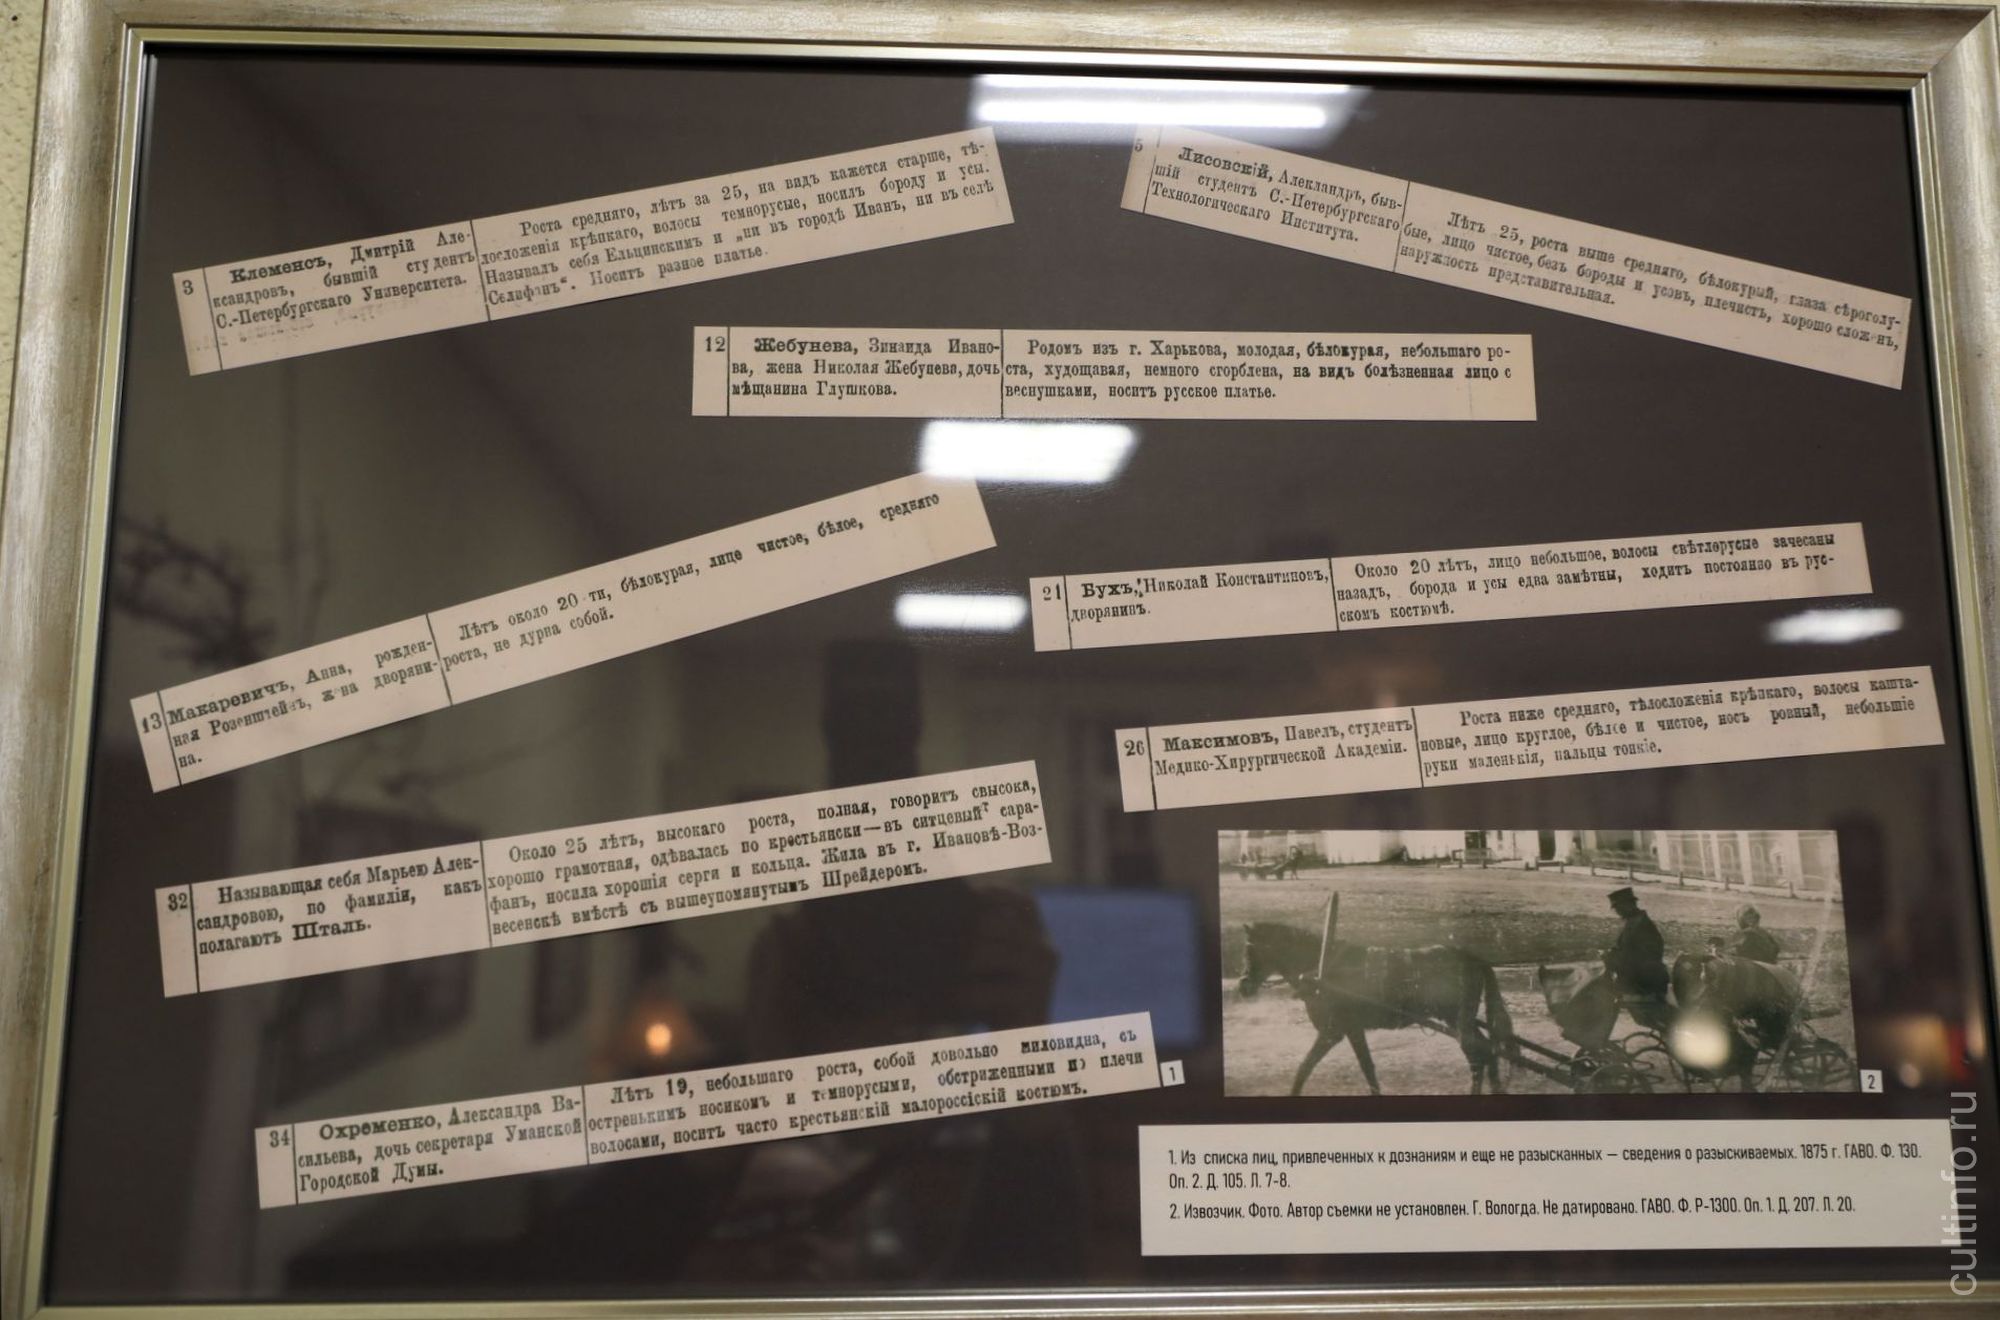 3
Клеменсъ, Дмитрій Але-
ксандровъ, бывшій студентъ
С.-Петербургскаго Университета.
Роста средняго, лѣтъ за 25, на видъ кажется старше, тѣ-
лосложенія крѣпкаго, волосы темнорусые, носилъ бороду и усы.
Называлъ себя Ельцинскимъ и „ни въ городѣ Иванъ, ни въ селѣ
Селифанъ“. Носитъ разное платье.
5
Лисовскій, Алекландръ, быв-
шій студентъ С.-Петербургскаго
Технологическаго Института.
Лѣтъ 25, роста выше средняго, бѣлокурый, глаза сѣроголу-
бые, лицо чистое, безъ бороды и усовъ, плечистъ, хорошо сложенъ,
наружность представительная.
12
Жебунева, Зинаида Ивано-
ва, жена Николая Жебунева, дочь
мѣщанина Глушкова.
Родомъ изъ г. Харькова, молодая, бѣлокурая, небольшаго ро-
ста, худощавая, немного сгорблена, на видъ болѣзненная лицо с
веснушками, носитъ русское платье.
13
Макаревичъ, Анна, рожден-
ная Розенштейнъ, жена дворяни-
на.
Лѣтъ около 20 ти, бѣлокурая, лице чистое, бѣлое, средняго
роста, не дурна собой.
21
Бухъ, Николай Константиновъ,
дворянинъ.
Около 20 лѣтъ, лицо небольшое, волосы свѣтлорусые зачесаны
назадъ, борода и усы едва замѣтны, ходитъ постоянно въ рус-
скомъ костюмѣ.
26
Максимовъ, Павелъ, студентъ
Медико-Хирургической Академіи.
Роста ниже средняго, тѣлосложенія крѣпкаго, волосы кашта-
новые, лицо круглое, бѣлое и чистое, носъ ровный, небольшіе
руки маленькія, пальцы тонкіе.
32
Называющая себя Марьею Алек-
сандровою, по фамиліи, какъ
полагаютъ Шталь.
Около 25 лѣтъ, высокаго роста, полная, говоритъ свысока,
хорошо грамотная, одѣвалась по крестьянски—въ ситцевый сара-
фанъ, носила хорошія серги и кольца. Жила въ г. Ивановѣ-Воз-
весенскѣ вмѣстѣ съ вышеупомянутымъ Шрейдеромъ.
34
Охременко, Александра Ва-
сильева, дочь секретаря Уманской
Городской Думы.
Лѣтъ 19, небольшаго роста, собой довольно миловидна, съ
остренькимъ носикомъ и темнорусыми, обстриженными по плечи
волосами, носитъ часто крестьянскій малороссіскій костюмъ.
1
2
1. Из списка лиц, привлеченных к дознаниям и еще не разысканных — сведения о разыскиваемых. 1875 г. ГАВО. Ф. 130.
Оп. 2. Д. 105. Л. 7-8.
2. Извозчик. Фото. Автор съемки не установлен. Г. Вологда. Не датировано. ГАВО. Ф. Р-1300. Оп. 1. Д. 207. Л. 20.
cultinfo.ru